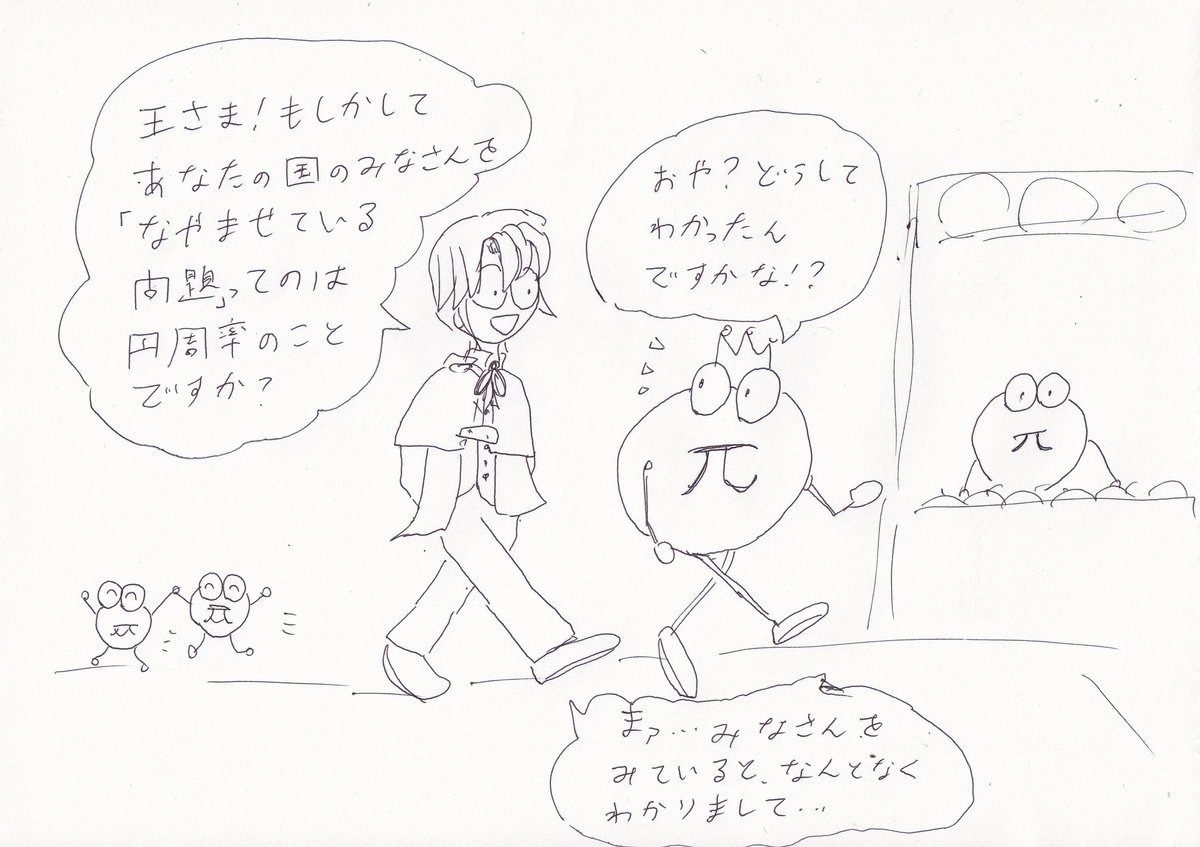 王さま！もしかして
あなたの国のみなさんを
「なやませている
問題」ってのは
円周率のこと
ですか？
おや？どうして
わかったん
ですかな！？
π
π
π
π
まァ…みなさんを
みていると、なんとなく
わかりまして…